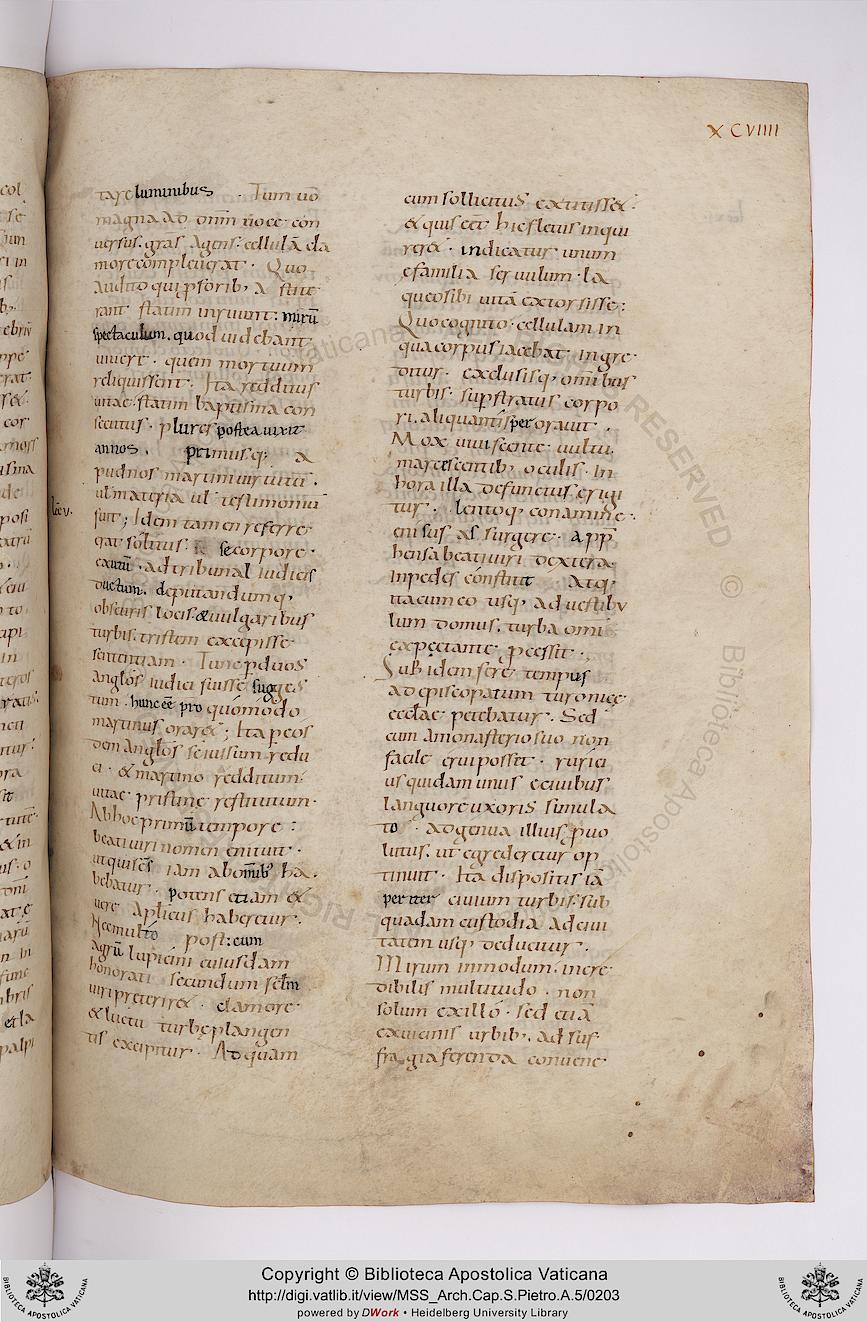 XCVIIII
tare luminibus · Tum uō
magna ad dnm̄ uoce con
uersus. gras agens. cellulā cla
more compleuerat · Quo
audito qui p̱ forib; a stite
rant statim inruunt: mirū
spectaculum. quod uidebant
uiuere · quem mortuum
reliquissent · Ita redditus
uitae statim baptisma con
secutus · plures postea uixit
annos . primusq; a
pud nos martini uirtutū.
uł materia uł testimoniū
fuit; Idem tamen referre
erat solitus · se corpore ·
exutū · ad tribunal iudicis
ductum. deputandumq;
obscuris locis· & uulgaribus
turbis. tristem excepisse
sententiam · Tunc p̱ duos
anglos iudici fuisse sugges
tum · hunc eē pro quo modo
martinus oraret; Ita p̱ eos
dem anglos se iussum redu
ci · & martino redditum·
uitae pristine restitutum·
Ab hoc primū tempore :
beati uiri nomen enituit ·
ut qui sc̄s iam ab omnib; ha·
bebatur · potens etiam &
uere aplicus haberetur ·
Nec multo post: cum
agrū lupicini cuiusdam
honorati secundum sctm
uiri preteriret · clamore
& luctu turbe plangen
tis excipitur · Ad quam
lec̄ v·
cum sollicitus extitisset ·
& quis eēt hic fletus inqui
reret · indicatur unum
e familia seruulum · la
queo sibi uitā extorsisse:
Quo cognito · cellulam in
qua corpus iacebat· ingre
ditur · exclusisq; omībus
turbis · supstratus corpo
ri. aliquantisper orauit .
Mox uiuiscente uultu.
marcescentib; oculis · in
hora illa defunctus erigi
tur · lentoq; conamine ·
enisus as surgere · app̄
hensa beati uiri dextera·
in pedes constitit Atq;
ita cum eo usq; ad uestibu
lum domus. turba omī
expectante p̱cessit ·,
Sub idem fere tempus
ad episcopatum turonice
eccłae petebatur · Sed
cum a monasterio suo non
facile erui posset · rurici
us quidam unus e ciuibus
languore uxoris simula
to · ad genua illius puo
lutus. ut egrederetur op
tinuit · Ita dispositis iā
per iter ciuium turbis· sub
quadam custodia ad ciui
tatem usq; deducitur .
Mirum in modum. incre
dibilis multitudo · non
solum ex illo · sed etiā
ex uicinis urbib;. ad suf
fragia ferenda conuene·
Copyright © Biblioteca Apostolica Vaticana
http://digi.vatlib.it/view/MSS_Arch.Cap.S.Pietro.A.5/0203
powered by DWork • Heidelberg University Library